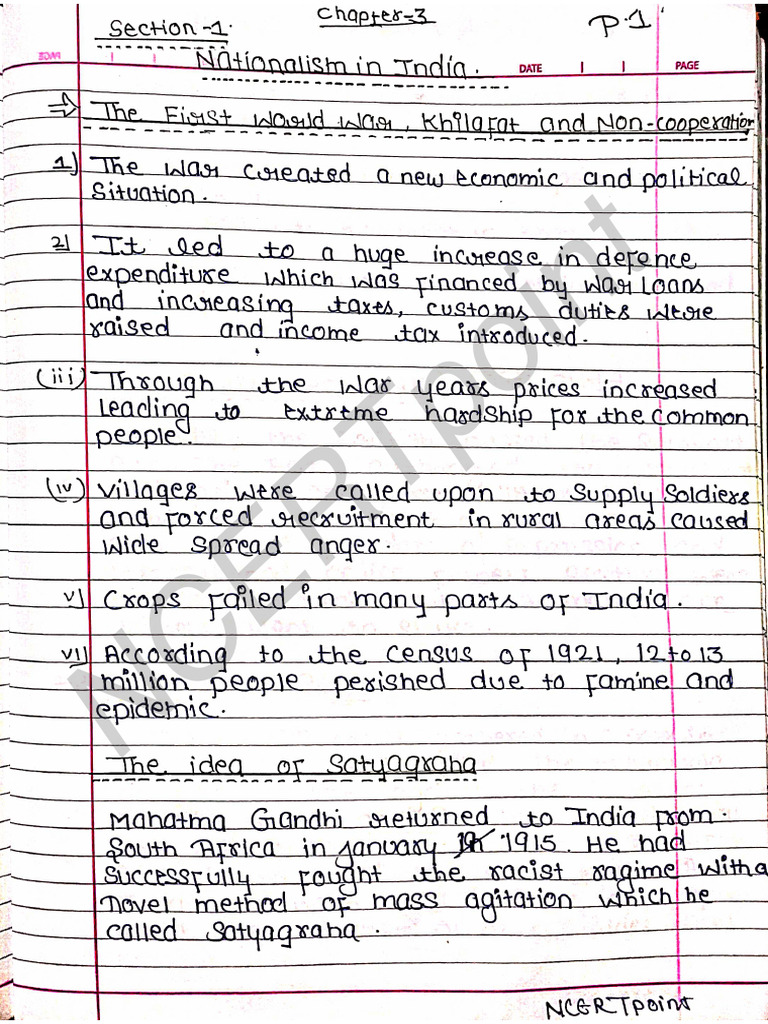 Chapter-3
Section-1.
P.1
Nationalism in India.
DATE
PAGE
⇒ The First World War, Khilafat and Non-cooperation
1) The war created a new economic and political
situation.
2) It led to a huge increase in defence
expenditure which was financed by war loans
and increasing taxes, customs duties were
raised and income tax introduced.
(iii) Through the war years prices increased
leading to extreme hardship for the common
people.
(iv) Villages were called upon to supply soldiers
and forced recruitment in rural areas caused
wide spread anger.
v) Crops failed in many parts of India.
vi) According to the census of 1921, 12 to 13
million people perished due to famine and
epidemic.
The idea of Satyagraha
Mahatma Gandhi returned to India from
South Africa in january 1915. He had
successfully fought the racist ragime with a
novel method of mass agitation which he
called Satyagraha.
NCERTpoint
NCERTpoint